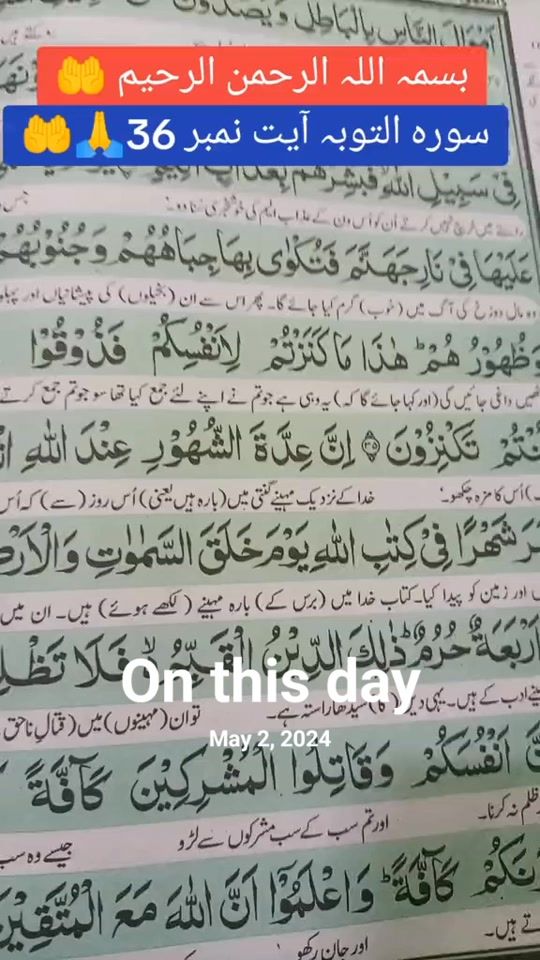 اَمْوَالَ النَّاسِ بِالْبَاطِلِ وَيَصُدُّوْنَ
بسمہ اللہ الرحمن الرحیم 🤲
سورہ التوبہ آیت نمبر 36 🙏🤲
فِیْ سَبِیْلِ اللّٰهِ فَبَشِّرْهُمْ بِعَذَابٍ
رستے میں خرچ نہیں کرتے اُن کو اُس دن کے عذاب الیم کی خوشخبری سنا دو۔ جس
عَلَیْهَا فِیْ نَارِ جَهَنَّمَ فَتُكْوٰی بِهَا جِبَاهُهُمْ وَجُنُوْبُهُمْ
وہ مال دوزخ کی آگ میں (خوب) گرم کیا جائے گا۔ پھر اس سے ان (بخیلوں) کی پیشانیاں اور پہلو
وَظُهُوْرُهُمْ ؕ هٰذَا مَا كَنَزْتُمْ لِاَنْفُسِكُمْ فَذُوْقُوْا
داغی جائیں گی (اور کہا جائے گا کہ) یہ وہی ہے جو تم نے اپنے لئے جمع کیا تھا سو جو تم جمع کرتے
كُنْتُمْ تَكْنِزُوْنَ ﴿۳۵﴾ اِنَّ عِدَّةَ الشُّهُوْرِ عِنْدَ اللّٰهِ
اُس کا مزہ چکھو۔ خدا کے نزدیک مہینے گنتی میں (بارہ ہیں یعنی) اُس روز (سے) کہ اُس
شَهْرًا فِیْ كِتٰبِ اللّٰهِ یَوْمَ خَلَقَ السَّمٰوٰتِ وَالْاَرْضَ
اور زمین کو پیدا کیا۔ کتاب خدا میں (برس کے) بارہ مہینے (لکھے ہوئے) ہیں۔ ان میں
اَرْبَعَةٌ حُرُمٌ ؕ ذٰلِكَ الدِّیْنُ الْقَیِّمُ ۙ فَلَا تَظْلِ
On this day
مہینے ادب کے ہیں۔ یہی دین (کا) سیدھا راستہ ہے۔ تو ان (مہینوں) میں (قتالِ ناحق
May 2, 2024
اَنْفُسَكُمْ وَقَاتِلُوا الْمُشْرِكِیْنَ كَآفَّةً
ظلم نہ کرنا۔ اور تم سب کے سب مشرکوں سے لڑو جیسے وہ سب
كَآفَّةً ؕ وَاعْلَمُوْۤا اَنَّ اللّٰهَ مَعَ الْمُتَّقِیْنَ
ہیں۔ اور جان رکھو